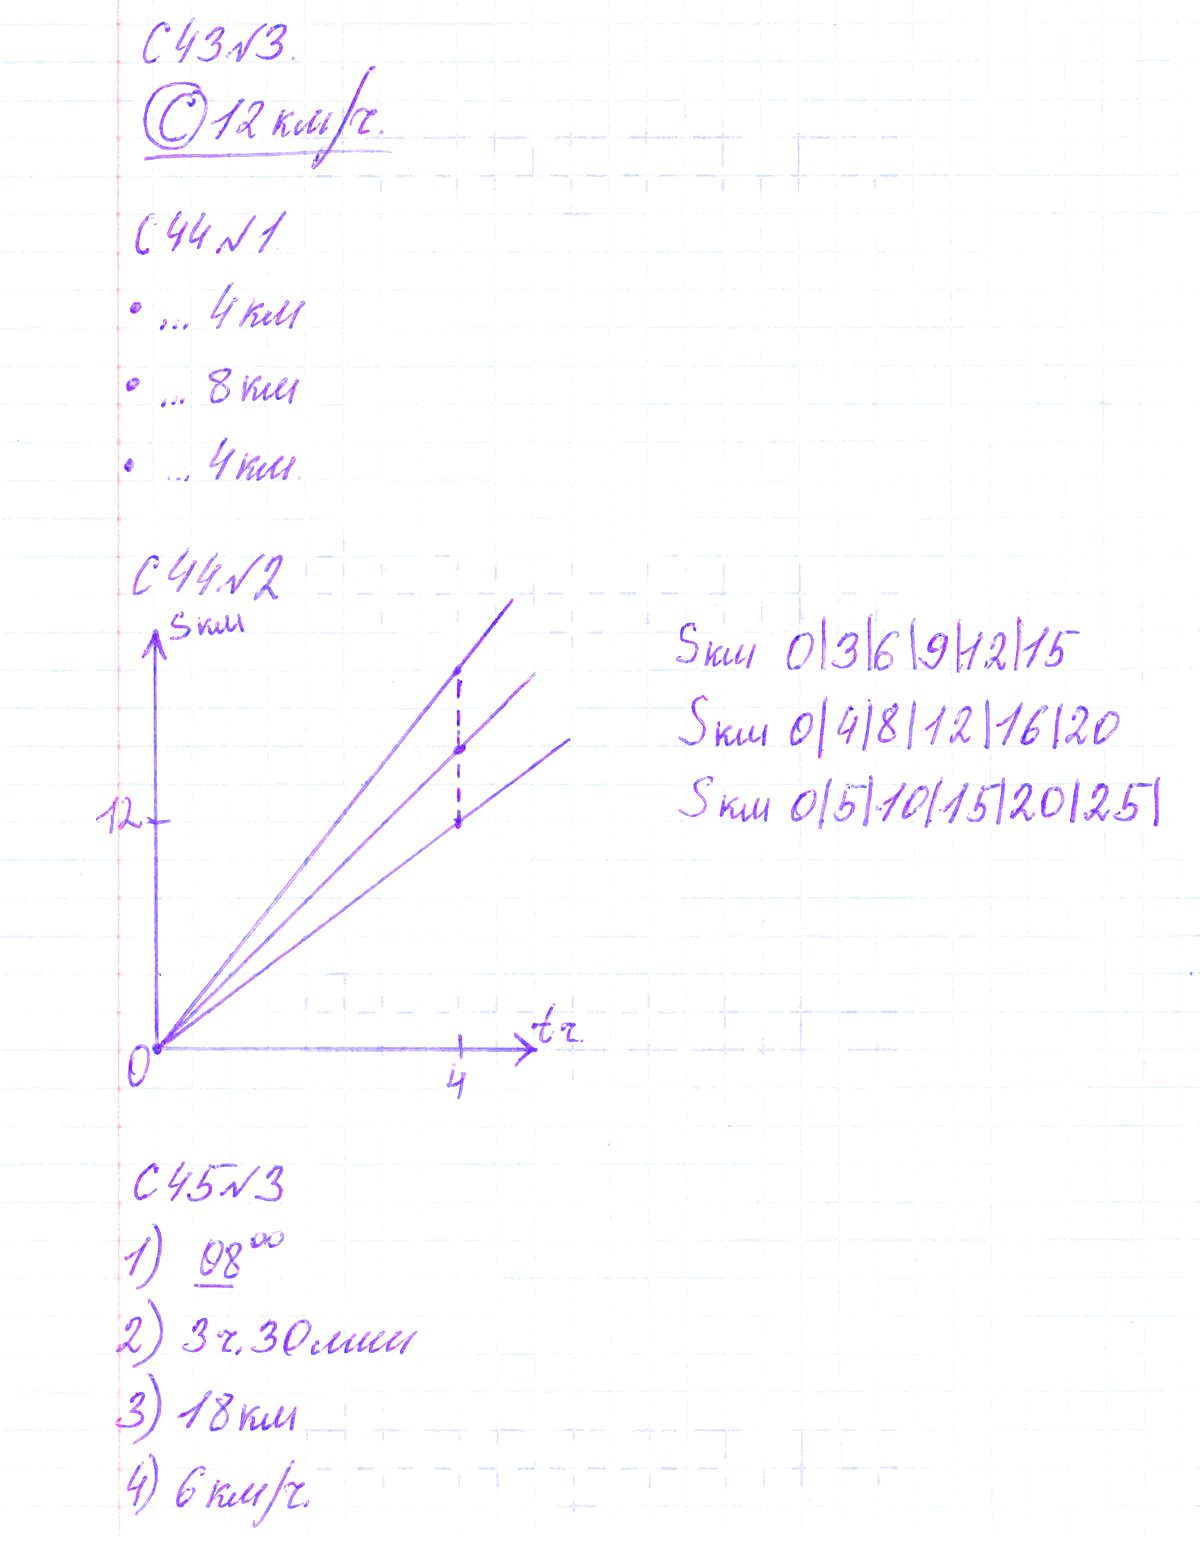 С43№3.
С 12 км/ч.
С44№1
• ... 4 км
• ... 8 км
• ... 4 км.
С44№2
Sкм
12
0
4
tч.
Sкм 0|3|6|9|12|15
Sкм 0|4|8|12|16|20
Sкм 0|5|10|15|20|25|
С45№3
1) 08⁰⁰
2) 3ч.30мин
3) 18км
4) 6км/ч.